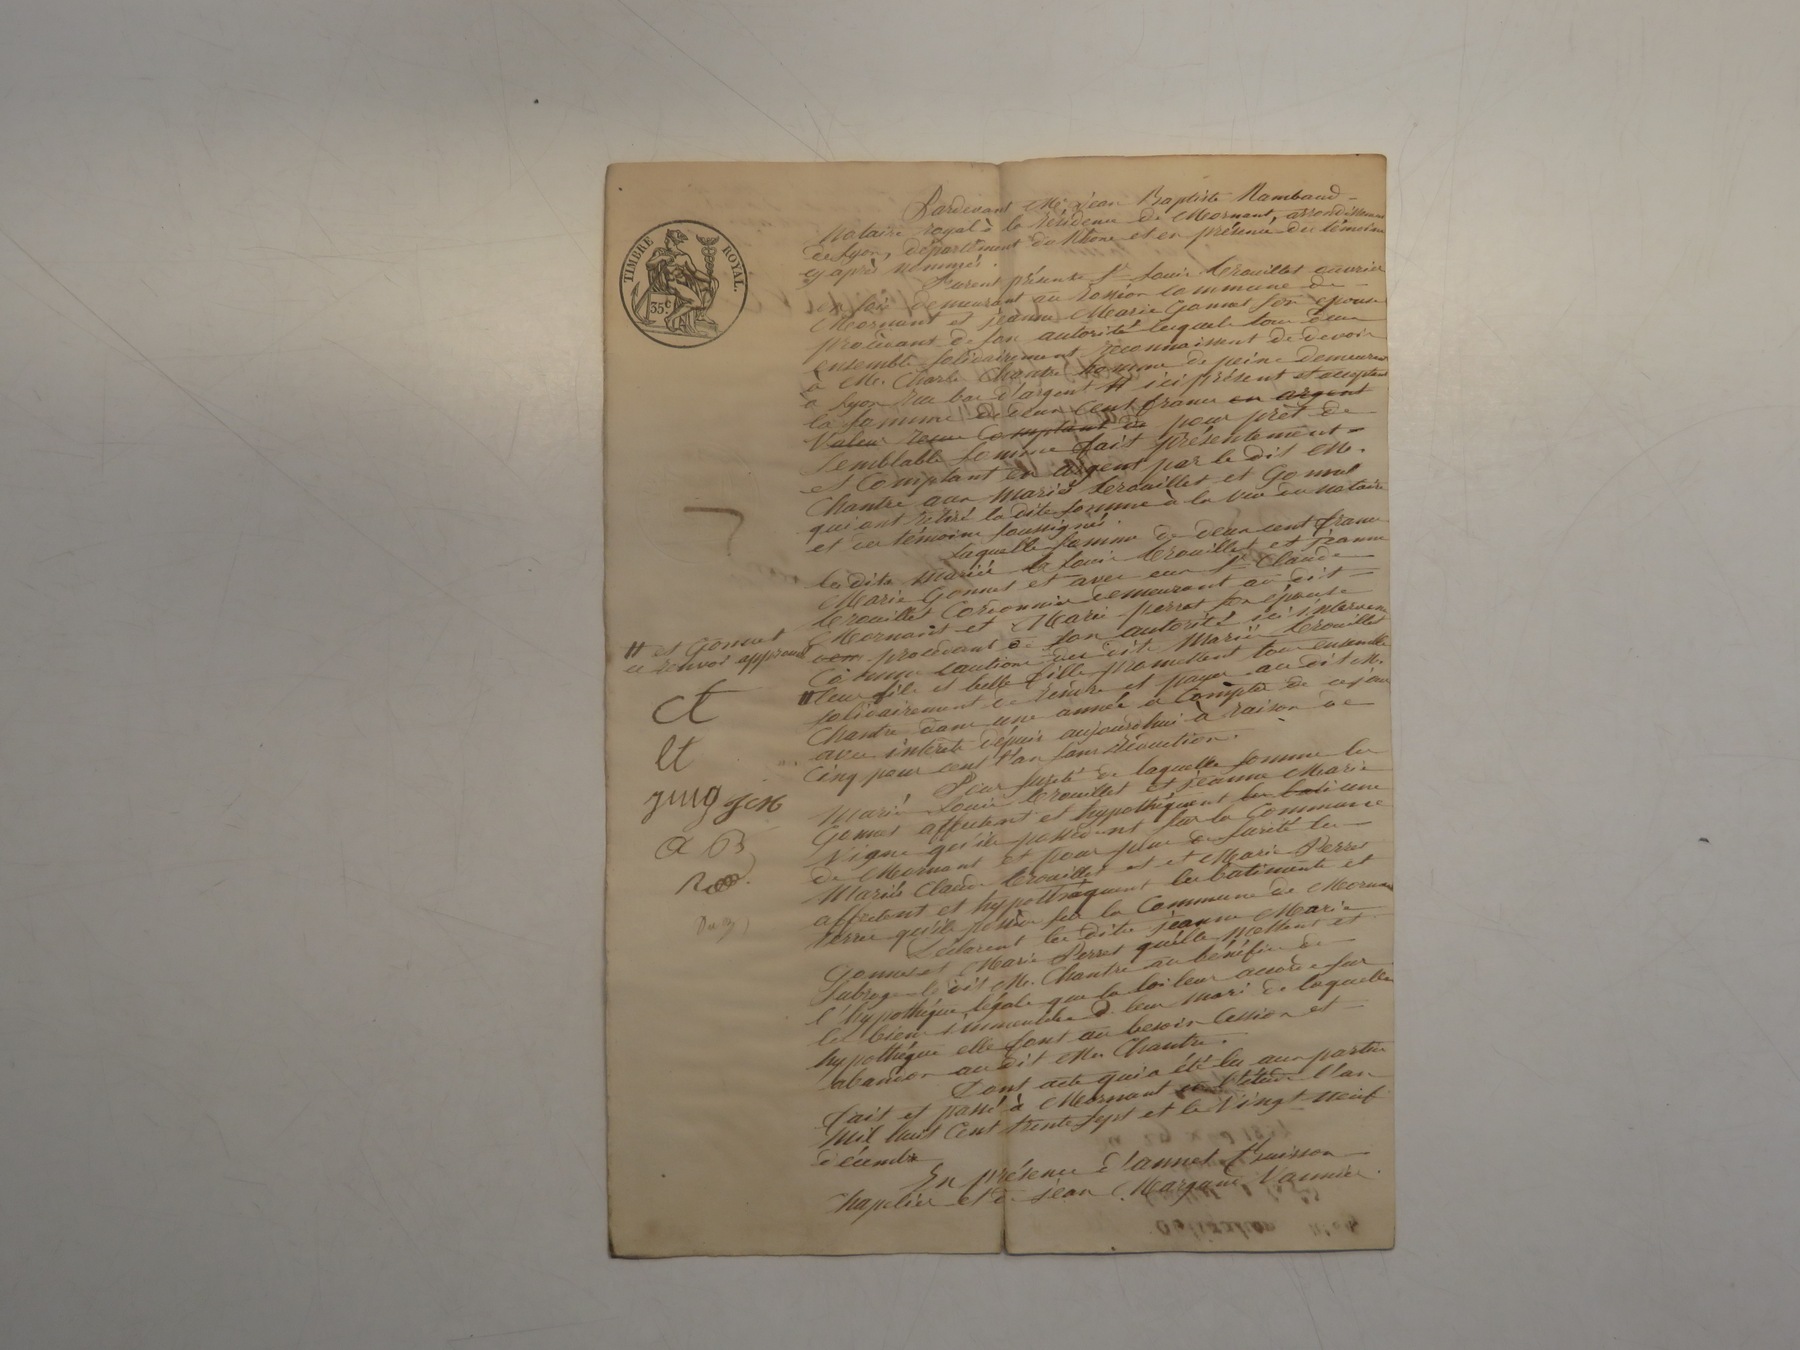 TIMBRE ROYAL.
35c
Pardevant Me Jean Baptiste Rambaud
Notaire royal à la résidence de Mornant, arrondissement
de Lyon, département du Rhône et en présence des témoins
cy après nommés.
Furent présents Sr Louis Crouillet ouvrier
en soie demeurant au rossion commune de
Mornant et jeanne Marie Gonnet son epouse
procèdant de son autorité lesquels tous deux
ensemble solidairement reconnaissent de devoir
à Mr. Charle Chantre homme de peine demeurant
à Lyon rue bas d'argent # ici présent et acceptant
la somme de deux cent francs en argent
Valeur reçue Comptant de pour prêt de
semblable somme fait présentement
et Comptant en argent par le dit Mr.
Chantre aux mariés Crouillet et Gonnet
qui ont retiré la dite somme à la vue du notaire
et des témoins soussignés.
Laquelle somme de deux cent francs
les dits mariés Louis Crouillet et jeanne
Marie Gonnet et avec eux Sr Claude
Crouillet Cordonnier demeurant au dit
Mornant et Marie perret son épouse
procèdant de son autorité ici intervenus
Comme cautions des dits Mariés Crouillet
# et Gonnet
ce renvoi approuvé
# leur fils et belle fille promettent tous ensemble
solidairement de rendre et payer au dit Mr.
Chantre dans une année à Compter de ce jour
avec intérêts depuis aujourdhui à raison de
Cinq pour cent l'an sans rétention.
Pour sureté de laquelle somme les
Mariés Louis Crouillet et jeanne Marie
Gonnet affectent et hypothèquent les bati une
Vigne qu'ils possèdent sur la Commune
de Mornant et pour plus de surêté les
Mariés Claude Crouillet et et Marie Perret
affectent et hypothèquent les batiments et
terres qu'ils possède sur la Commune de Mornant
Déclarent les dites jeanne Marie
Gonnet et Marie Perret qu'elles mettent et
subroge le dit Mr. Chantre au bénéfice de
l'hypothèque légale que la loi leur accorde sur
les biens immeubles de leur mari de laquelle
hypothèque elle font au besoin Cession et
abandon au dit Mr. Chantre.
Dont acte qui a été lu aux parties
fait et passé à Mornant en l'étude l'an
Mil huit Cent trente sept et le Vingt neuf
décembre
En présence d'annet Buisson
Chapelier et de jean Vannier.
ct
lt
jmg
a B